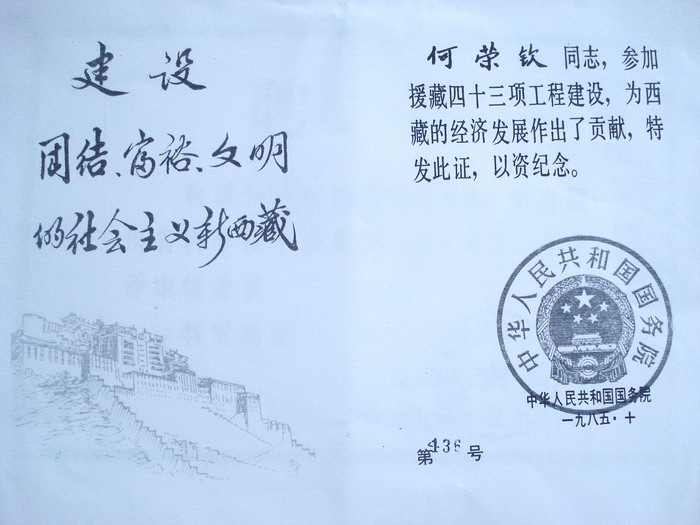 建设
团结、富裕、文明
的社会主义新西藏
何荣钦 同志，参加
援藏四十三项工程建设，为西
藏的经济发展作出了贡献，特
发此证，以资纪念。
中华人民共和国国务院
中华人民共和国国务院
一九八五·十
第436号